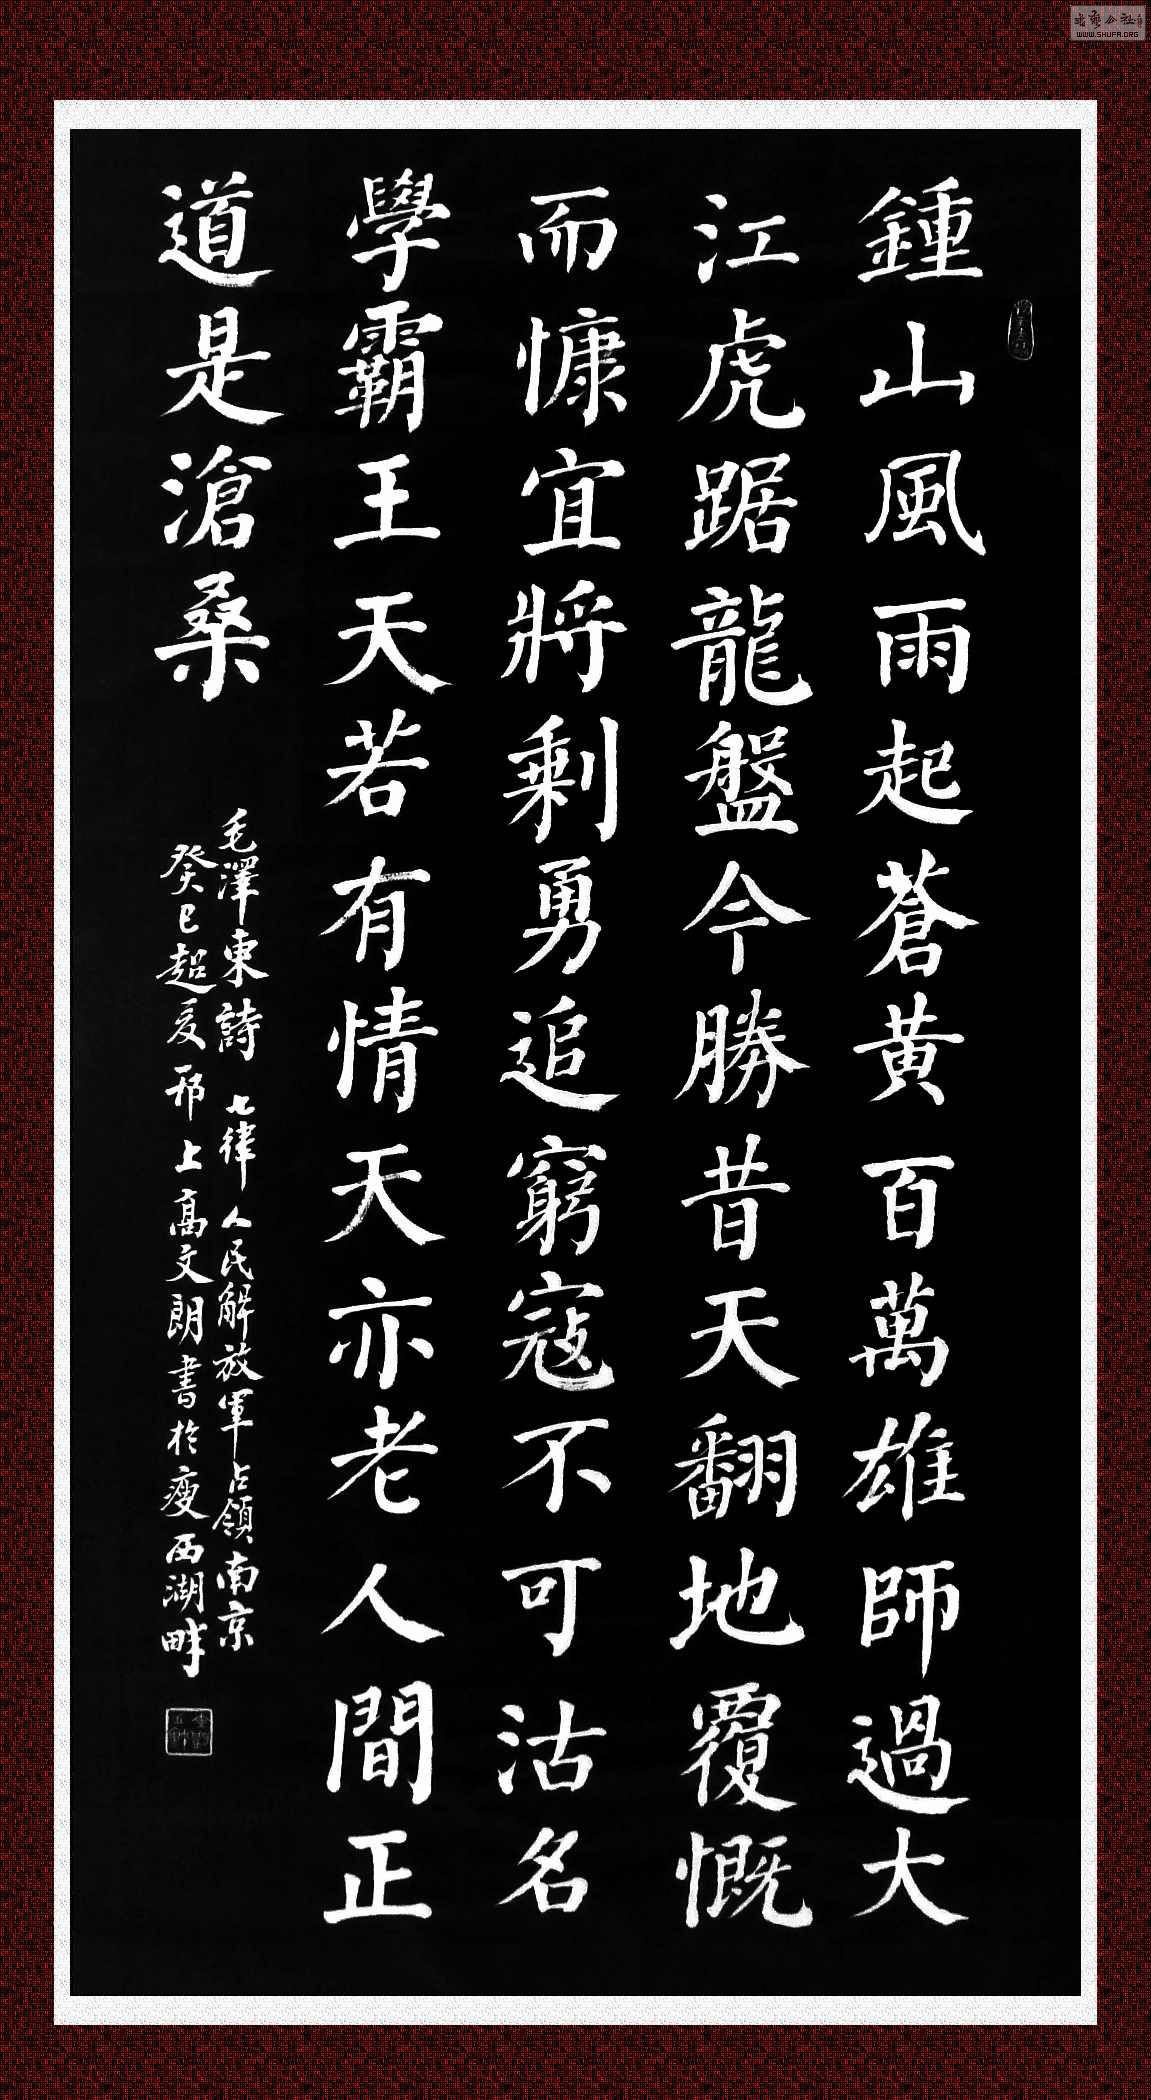 鍾山風雨起蒼黄百萬雄師過大
江虎踞龍盤今勝昔天翻地覆慨
而慷宜將剩勇追窮寇不可沽名
學霸王天若有情天亦老人間正
道是滄桑
毛澤東詩 七律 人民解放軍占領南京
癸巳超友邗上高文朗書於瘦西湖畔
WWW.SHUFA.ORG